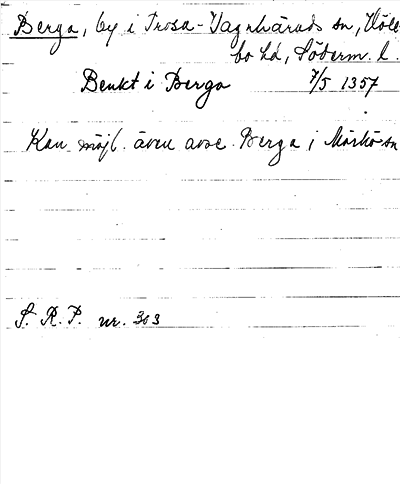 Berga, by i Trosa-Vagnhärads sn, Hölebo hd, Söderm. l.
Benkt i Berga 7/5 1357
Kan möjl. även avse Berga i Mörkö sn
S. R. P. nr. 303